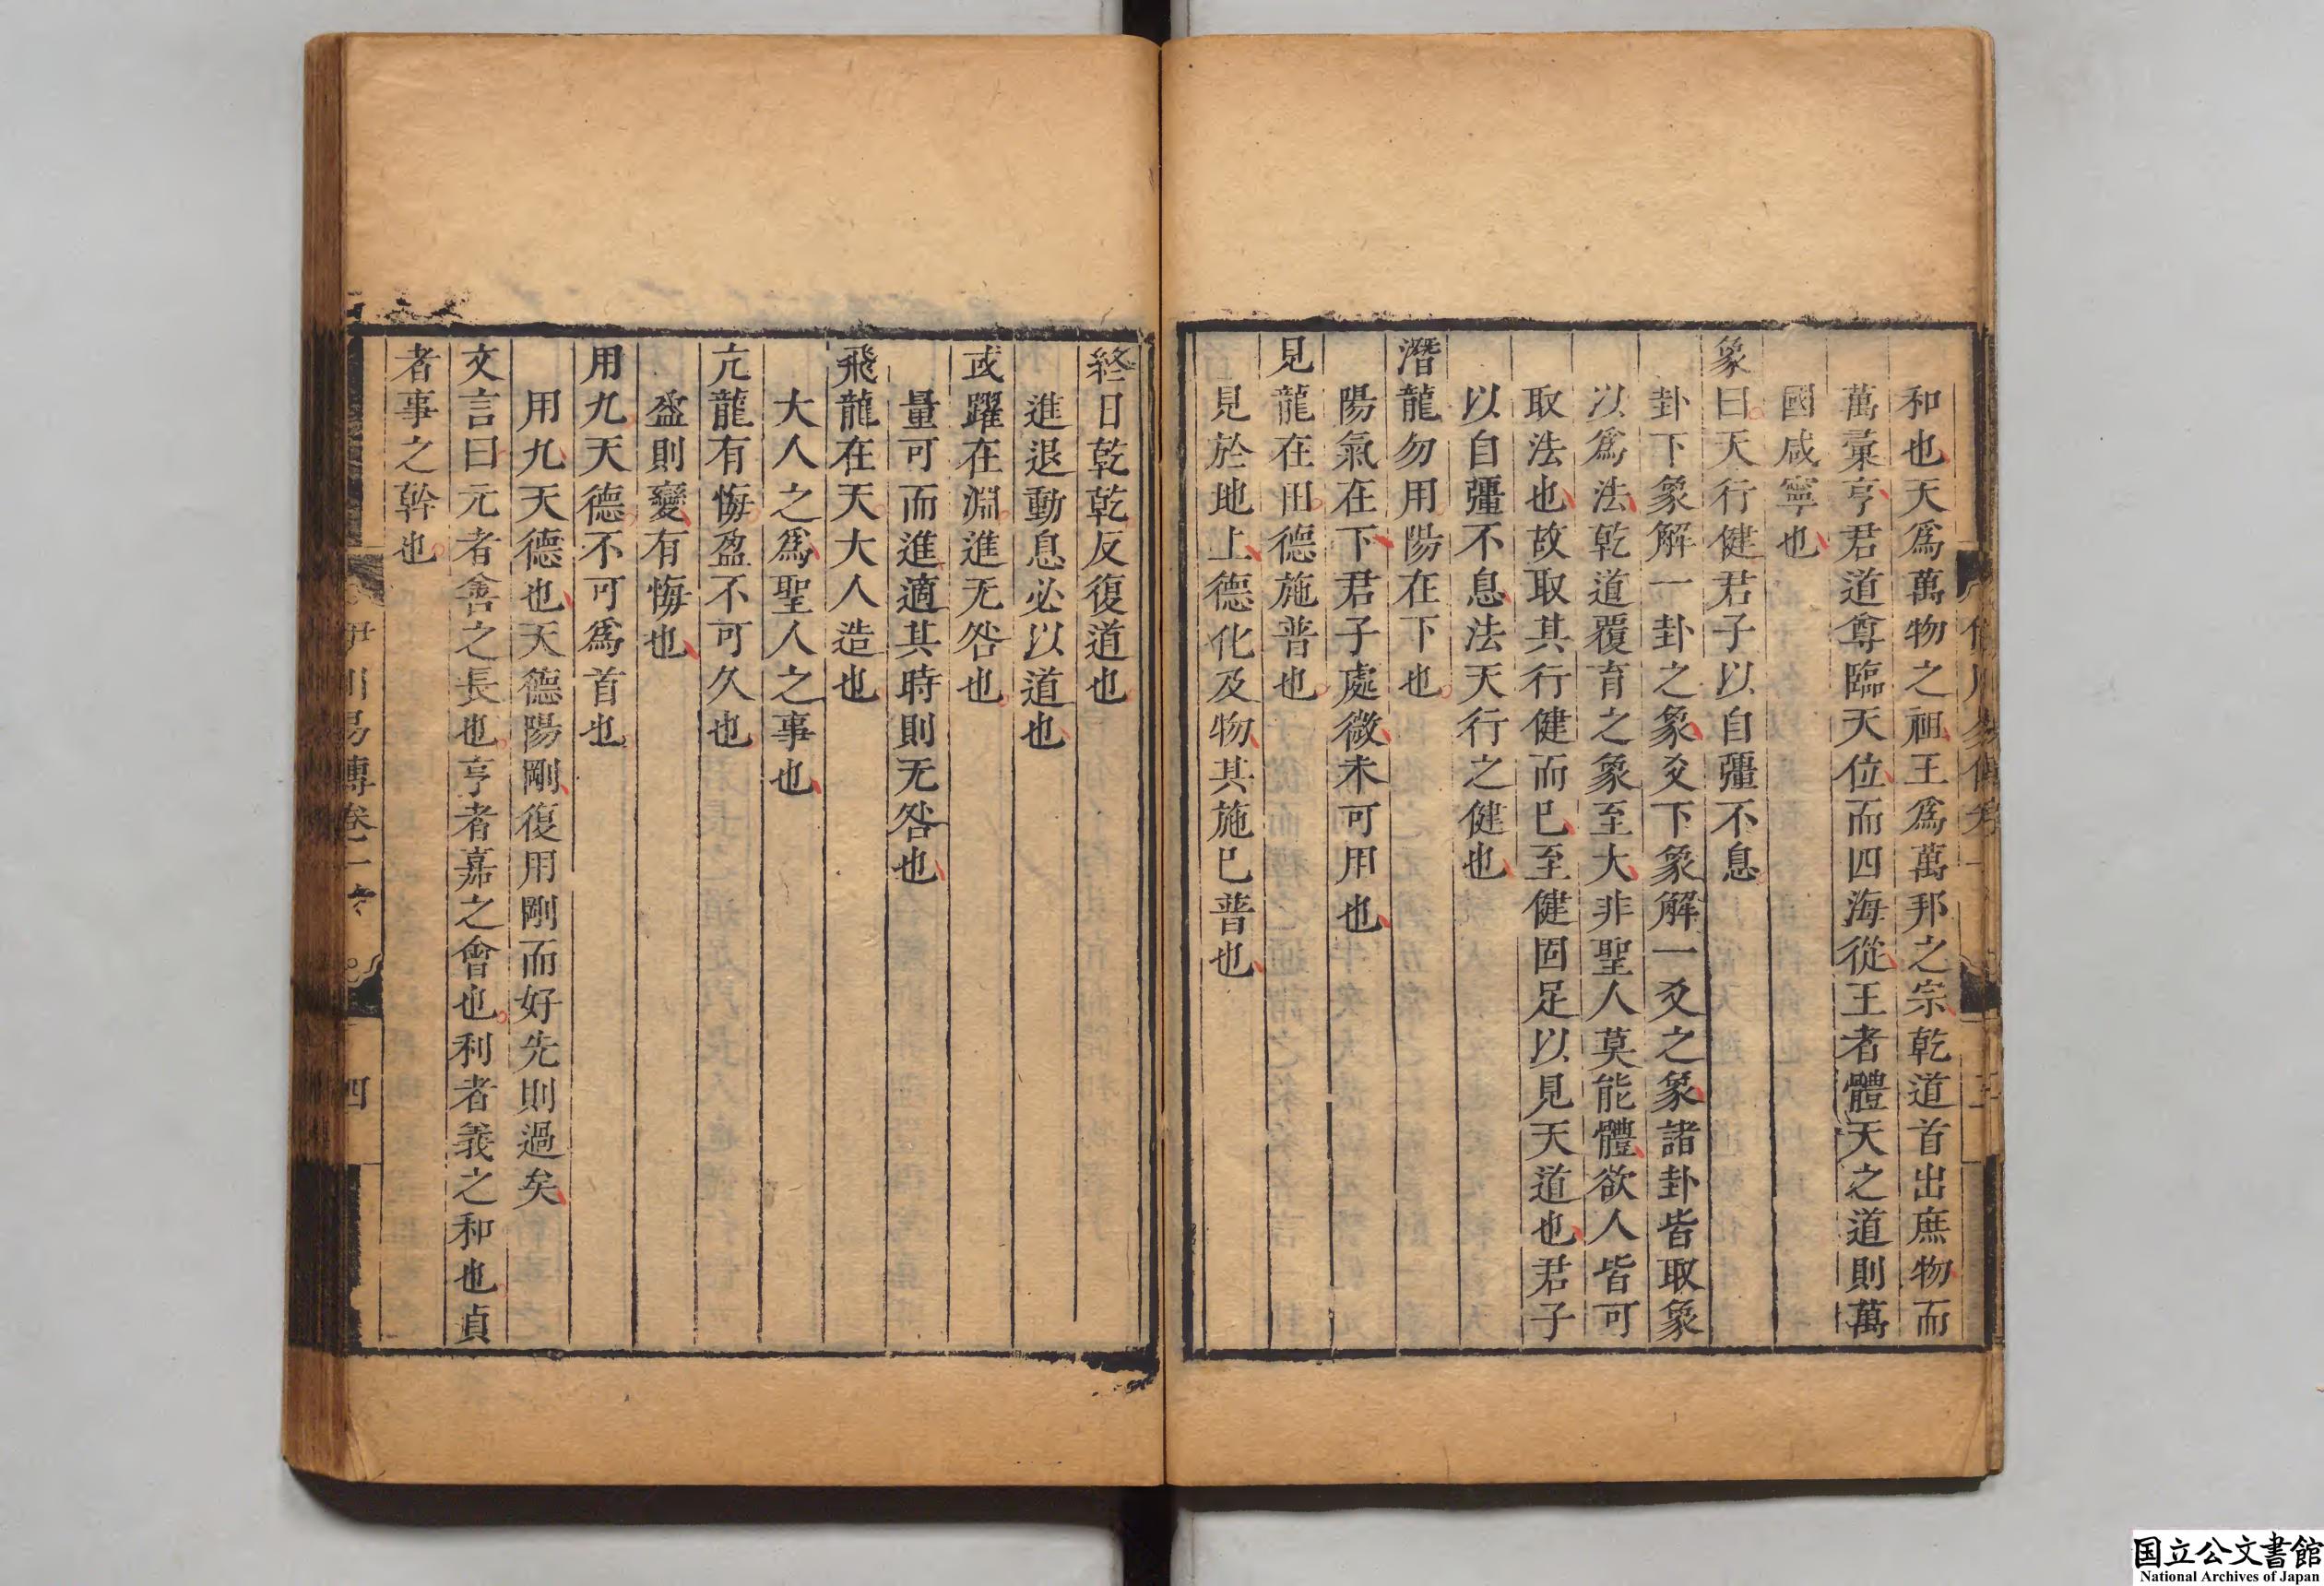 和也天爲萬物之祖王爲萬邦之宗乾道首出庶物而
萬彙亨君道尊臨天位而四海從王者體天之道則萬
國咸寧也
象曰天行健君子以自彊不息
卦下象解一卦之象爻下象解一爻之象諸卦皆取象
以爲法乾道覆育之象至大非聖人莫能體欲人皆可
取法也故取其行健而已至健固足以見天道也君子
以自彊不息法天行之健也
潛龍勿用陽在下也
陽氣在下君子處微未可用也
見龍在田德施普也
見於地上德化及物其施已普也
終日乾乾反復道也
進退動息必以道也
或躍在淵進无咎也
量可而進適其時則无咎也
飛龍在天大人造也
大人之爲聖人之事也
亢龍有悔盈不可久也
盈則變有悔也
用九天德不可爲首也
用九天德也天德陽剛復用剛而好先則過矣
文言曰元者善之長也亨者嘉之會也利者義之和也貞
者事之幹也
伊川易傳卷一
四
国立公文書館
National Archives of Japan